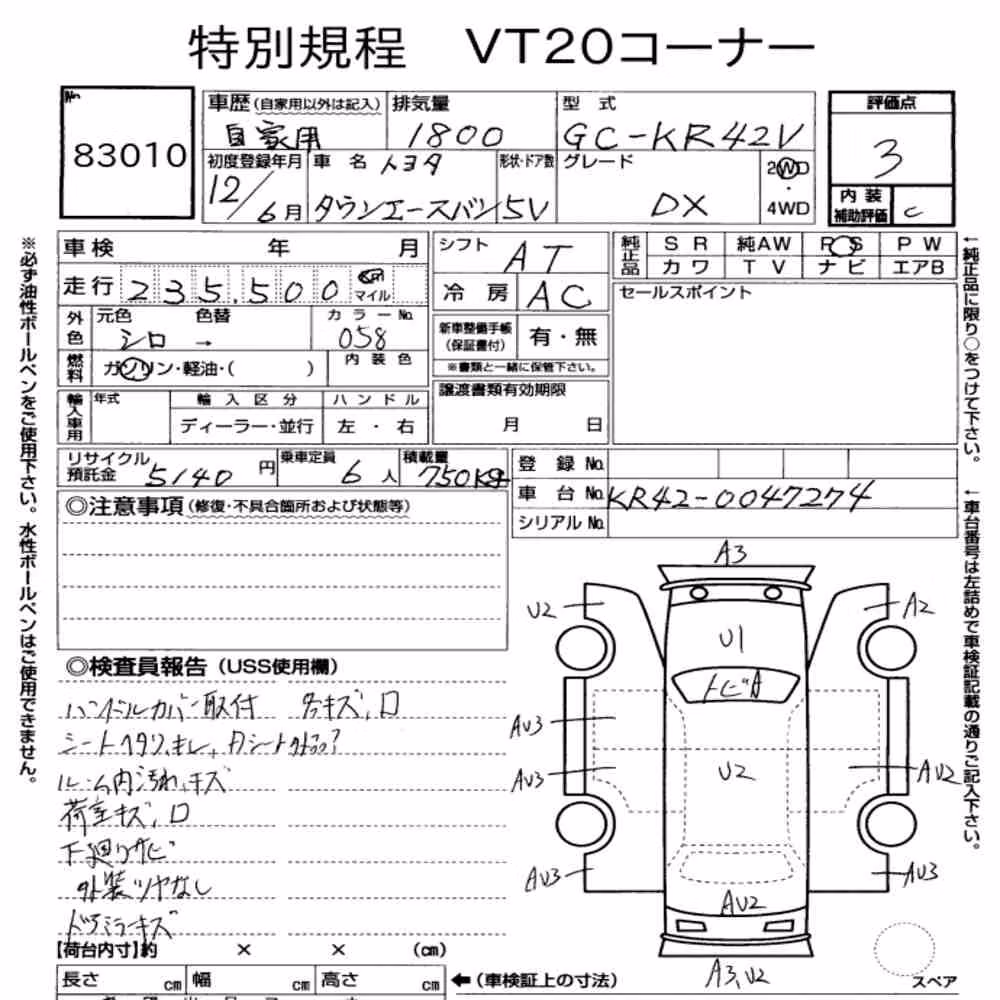 特別規程 VT20コーナー
No. 83010
車歴(自家用以外は記入) 排気量 型式 評価点
自家用 1800 GC-KR42V 3
初度登録年月 車名 トヨタ 形状・ドア数 グレード 2WD・4WD
12/6月 タウンエースバン 5V DX
内装補助評価 C
車検 年 月 シフト AT
純正品 SR 純AW PS PW
カワ TV ナビ エアB
走行 235,500 km マイル 冷房 AC
セールスポイント
外色 元色 色替 カラーNo.
シロ → 058
新車整備手帳(保証書付) 有・無
※書類と一緒に保管下さい。
燃料 ガソリン・軽油・( ) 内装色
輸入車用 年式 輸入区分 ハンドル
ディーラー・並行 左・右
譲渡書類有効期限
月 日
リサイクル預託金 5140円 乗車定員 6人 積載量 750kg
登録No.
車台No. KR42-0047274
シリアルNo.
◎注意事項(修復・不具合箇所および状態等)
◎検査員報告(USS使用欄)
ハンドルカバー取付 各キズ,ロ
シートヘタリ,キレ,
ルーム内汚れ,キズ
荷室キズ,ロ
下廻りサビ
外装ツヤなし
ドアミラーキズ
【荷台内寸】約 × × (cm)
長さ cm 幅 cm 高さ cm ←(車検証上の寸法)
A3
U2 A2
U1
トビA
AU3
U2
AU3 AU2
AU3 AU3
AU2
A3,U2
スペア
※必ず油性ボールペンをご使用下さい。水性ボールペンはご使用できません。
←純正品に限り○をつけて下さい。
←車台番号は左詰めで車検証記載の通りご記入下さい。